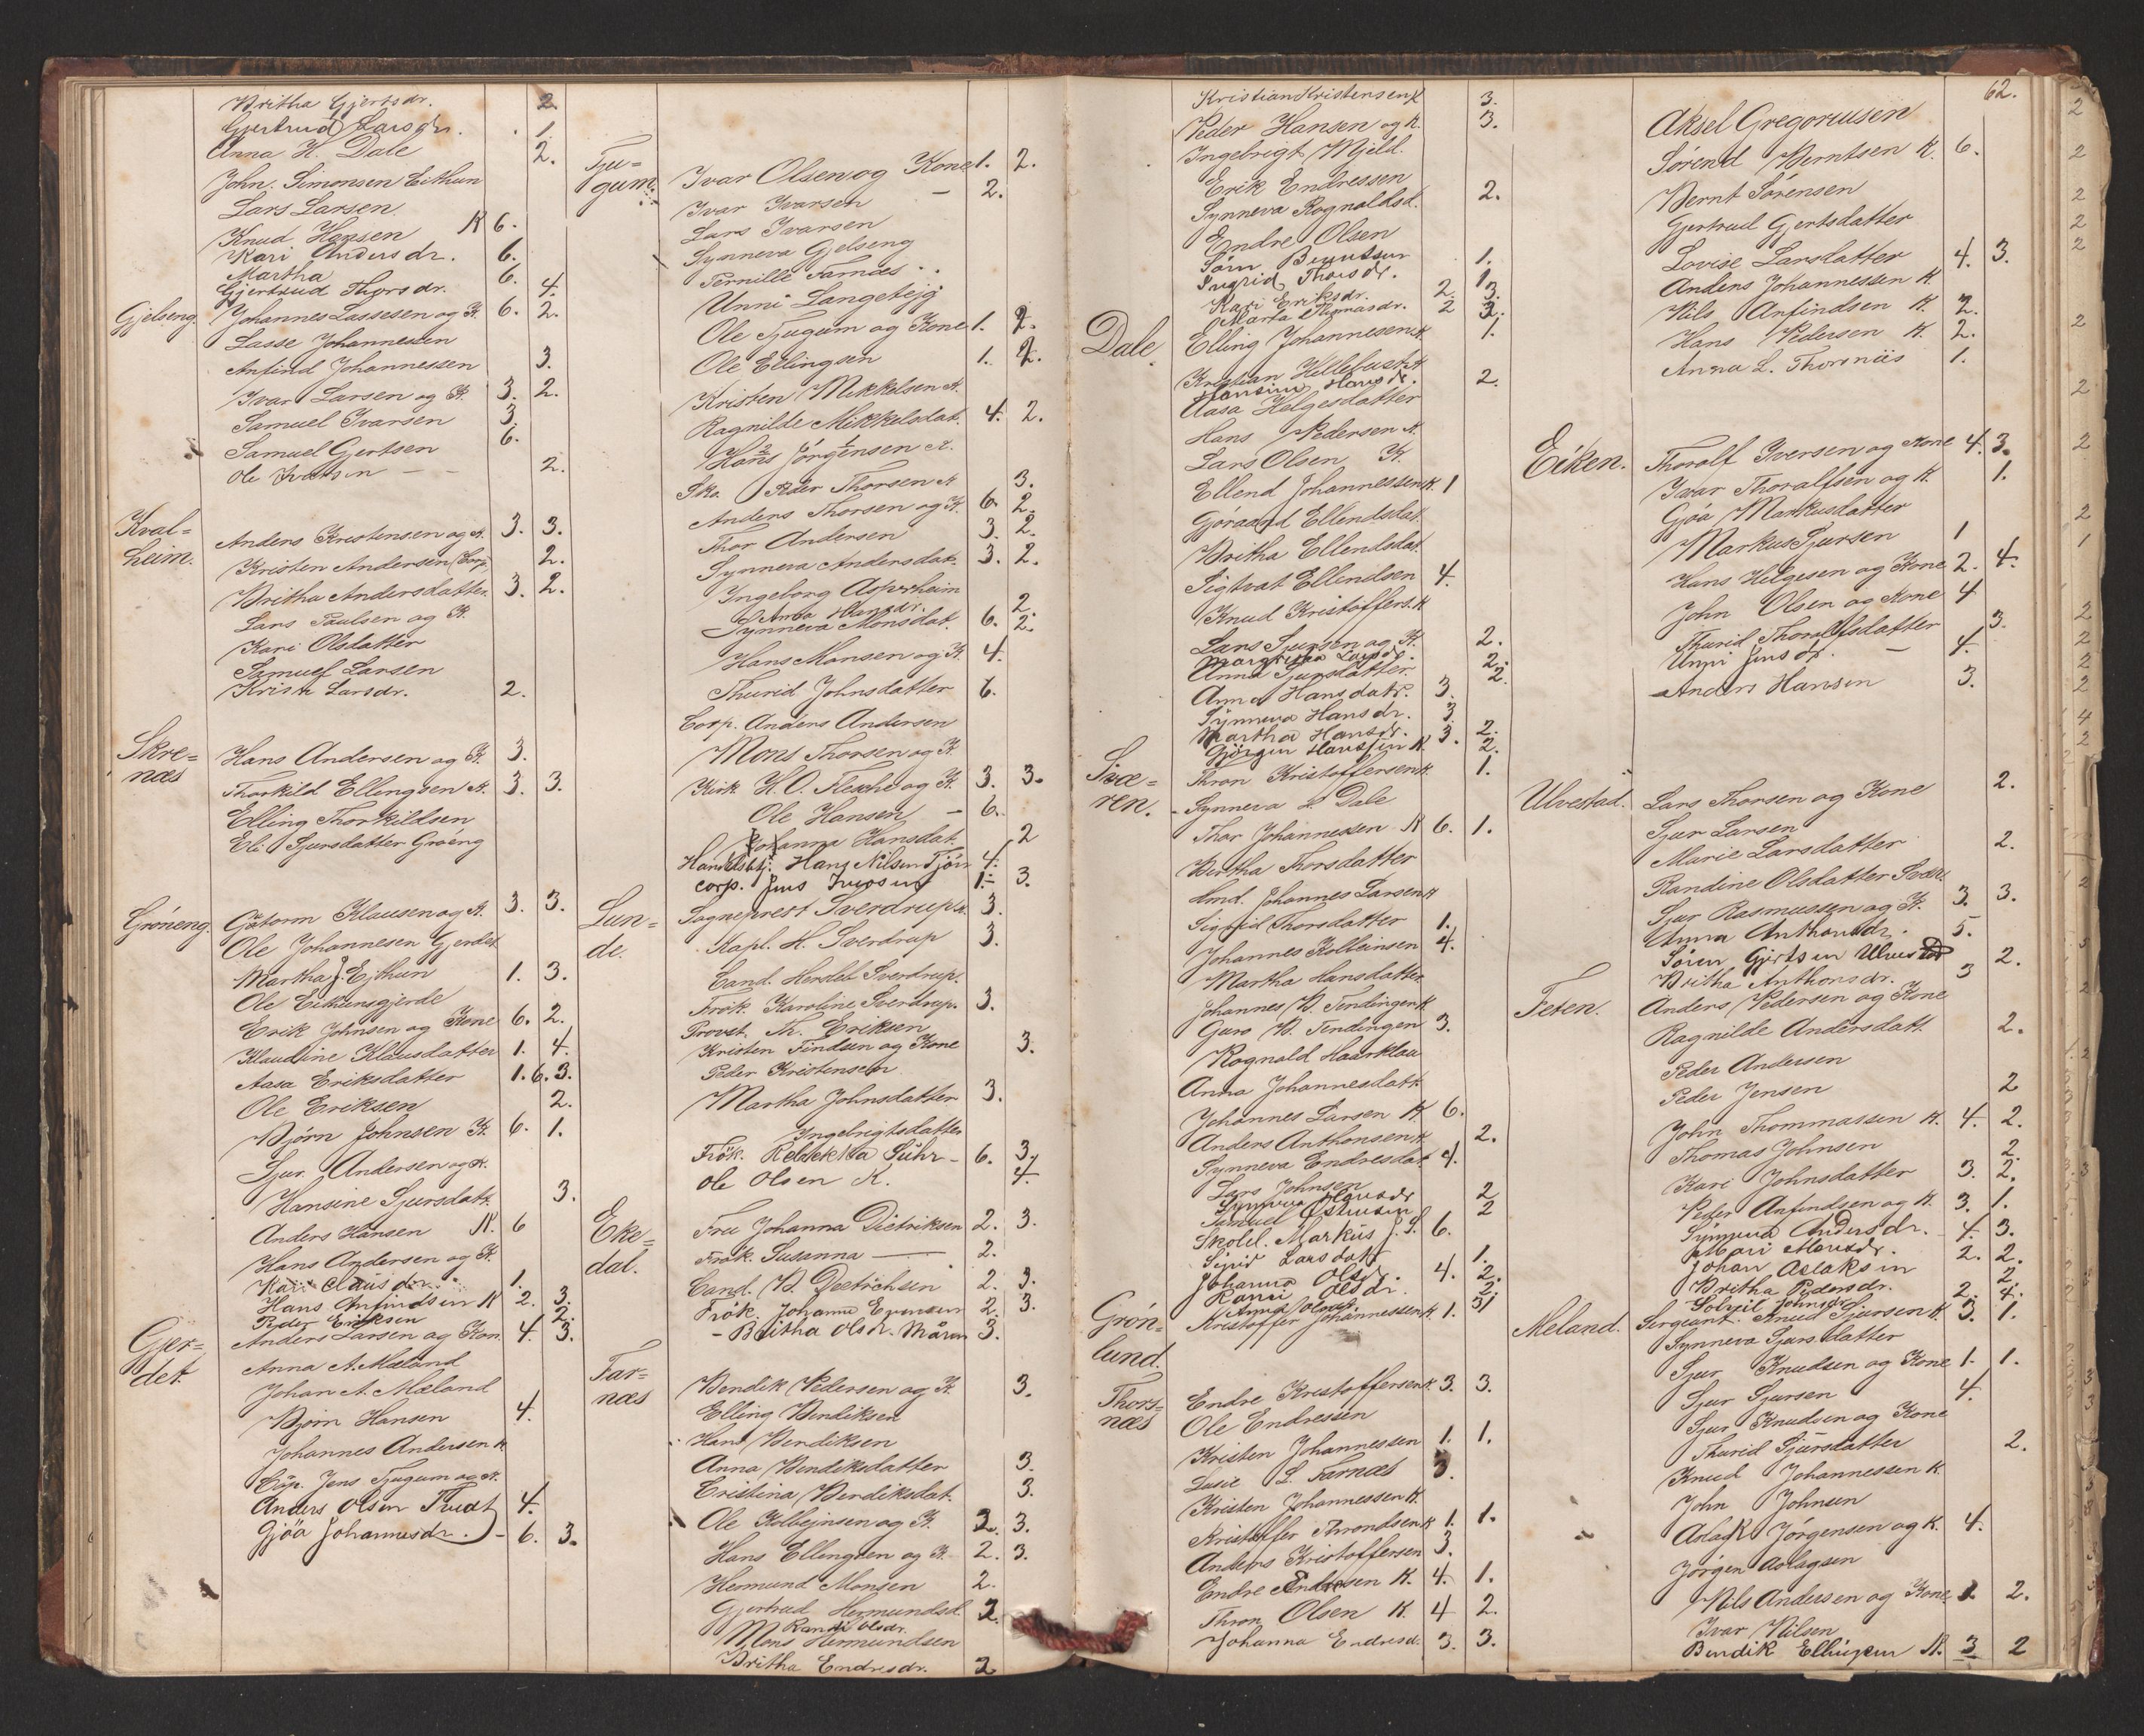 Britha Gjertsdr. 2.
Gjertrud Larsdr. 1.
Anna H. Dale 2.
John. Simonsen Eithun
Lars Larsen
Knud Hansen K 6.
Kari Andersdr. 6.
Martha 6.
Gjertrud Thorsdr. 4.
Gjelseng. Johannes Lassesen og K. 6. 2.
Lasse Johannessen
Anfind Johannessen 3.
Ivar Larsen og K. 3. 2.
Samuel Ivarsen 3
Samuel Gjertsen 6.
Ole Ivarsen 2.
Kval=
heim. Anders Kristensen og K. 3. 3.
Kristen Andersen (Corp.) 2.
Britha Andersdatter 3. 2.
Lars Paulsen og K.
Kari Olsdatter
Samuel Larsen
Kristi Larsdr. 2.
Skre=
næs Hans Andersen og K. 3.
Thorkild Ellingsen K. 3. 3.
Elling Thorkildsen
Eli Sjursdatter Gröeng
Gröneng. Gutorm Klausen og K. 3. 3.
Ole Johannesen Gjerdet
Martha J. Ejthun 1. 3.
Ole Eithunsgjerde
Erik Johnsen og Kone 6. 2.
Klaudine Klausdatter 1. 4.
Aasa Eriksdatter 1. 6. 3.
Ole Eriksen 2.
Björn Johnsen K. 6. 1.
Sjur Andersen og K.
Hansine Sjursdatt. 3.
Anders Hansen K. 6
Hans Andersen og K.
Kari Clausdr. 1.
Hans Anfindsen K 2. 3.
Peder Eriksen 2.
Gjer=
det. Anders Larsen og Kon. 4. 3.
Anna A. Mæland
Johan A. Mæland
Björn Hansen 4.
Johannes Andersen K
Cap. Jens Tjugum og K.
Anders Olsen Tvedt 4.
Gjöa Johannesdr. 6. 3.
Tju=
gum. Ivar Olsen og Kone 1. 2.
Ivar Ivarsen 2.
Lars Ivarsen
Synneva Gjelseng
Pernille Farnæs
Unni Langetejg
Ole Tjugum og Kone 1. 2.
Ole Ellingsen 1. 2.
Kristen Mikkelsen K.
Ragnilde Mikkelsdat. 4. 2.
Hans Jörgensen K.
Sko. Peder Thorsen K 3.
Anders Thorsen og K. 6. 2.
Thor Andersen 3. 2.
Synneva Andersdat. 3. 2.
Ingeborg Asperheim
Anna Hansdr. 2
Synneva Monsdat. 6. 2.
Hans Monsen og K. 4.
Thurid Johnsdatter 6.
Corp. Anders Andersen
Mons Thorsen og K
Kirk. H. O. Flesche og K. 3. 3.
Ole Hansen 6.
Johanna Hansdat. 2
Handelsbtj: Hans Nilsen Tjön 4.
corp. Jens Iversen 1. 3.
Lun=
de. Sogneprest Sverdrup K. 3.
Kapl. H. Sverdrup 3.
Cand. Hersleb Sverdrup.
Frök. Karoline Sverdrup. 3.
Provst Th. Eriksen
Kristen Findsen og Kone 3.
Peder Kristensen
Martha Johnsdatter 3.
Ingebrigtsdatter
Frök. Rebekka Suhr 6. 3.
Ole Olsen K. 4.
Eke=
dal. Fru Johanna Dietriksen 2. 3.
Frök. Susanna 2.
Cand. B. Dietrichsen 2. 3.
Frök. Johanne Evensen 2. 3.
Britha Olsdr. Måren 3.
Far=
næs Bendik Pedersen og K. 3.
Elling Bendiksen
Hans Bendiksen
Anna Bendiksdatter 3.
Cristina Bendiksdat. 3.
Ole Kolbejnsen og K. 2. 3.
Hans Ellingsen og K. 2. 3.
Hermund Monsen 2.
Gjertrud Hermundsd. 2.
Randi Olsdr.
Mons Hermundsen
Britha Endresdr. 2
Kristian Kristensen K 3.
Peder Hansen og K. 3.
Ingebrigt Mjeld.
Erik Endressen
Synneva Rognaldsd. 2.
Endre Olsen
Sörn Berntsen 1.
Ingrid Thorsdr. 1
Kari Eriksdr. 2. 3.
Marta Thomasdr. 2 3.
Dale Elling Johannesen K. 1.
Kristian Hellebust K
Hansine Hansdr. 2.
Aasa Helgesdatter
Hans Pedersen K.
Lars Olsen K.
Ellend Johannessen K. 1
Göraand Ellendsdat.
Britha Ellendsdat.
Sigtvat Ellendsen 4.
Knud Kristoffers. K
Lars Sjursen og K. 2.
Margretha Larsdr. 2.
Anna Sjursdatter 2.
Anna Hansdatr. 3.
Synneva Hansdr. 3
Martha Hansdr. 3. 2.
Gjörgen Hansen K. 2.
Svæ=
ren. Thron Kristoffersen K. 1.
Synneva L. Dale
Thor Johannessen K 6. 1.
Bertha Thorsdatter
Lmd. Johannes Larsen K
Sigrid Thorsdatter 1.
Johannes Kolbeinsen 4.
Martha Hansdatter
Johannes B. Tendingen K
Guro B. Tendingen 3.
Rognald Haarklau
Anna Johannesdatt.
Johannes Larsen K 6.
Anders Anthonsen K 2.
Synneva Endresdat 4.
Lars Johnsen
Synneva Hansdr 2
Samuel Östensen 2
Skolel. Markus J. S. 6.
Sigrid Larsdatt 1.
Johanna Olsdr. 4. 2.
Ranni Olsdr. 2.
Anna Olsdr. 3
Grön=
lund. Kristoffer Johannessen K 1. 1
Thors=
næs Endre Kristoffersen K. 3. 3.
Ole Endressen
Kristen Johannessen 1. 1.
Lusie L. Farnæs 3.
Kristen Johannessen K.
Kristoffer Throndsen K 1. 1.
Anders Kristoffersen 3.
Endre Endresen K. 4. 1.
Thron Olsen K. 4 2.
Johanna Endresd. 3. 3.
62.
Aksel Gregoriusen
Sörend Berntsen K. 6.
Bernt Sörensen
Gjertrud Gjertsdatter
Lovise Larsdatter 4. 3.
Anders Johannessen K.
Nils Anfindsen K. 2.
Hans Pedersen K. 2.
Anna L. Thorsnäs 1.
Eiken. Thoralf Iversen og Kone 4. 3.
Ivar Thoralfsen og K. 1.
Gjöa Markusdatter
Markus Sjursen 1
Hans Helgesen og Kone 2. 4.
John Olsen og Kone 4
Thurid Thoralfsdatter 3.
Unni Jensdr. 4.
Anders Hansen 3.
Ulvestad. Lars Thorsen og Kone 2.
Sjur Larsen
Marie Larsdatter 2.
Randine Olsdatter
Sjur Rasmussen og K. 3. 3.
Anna Anthonsdr. 5.
Sören Gjertsen Ulvestad 2.
Britha Anthonsdr. 3
Feten. Anders Pedersen og Kone
Ragnilde Andersdatt. 2.
Peder Andersen
Peder Jensen 2
John Thommassen K. 4. 2.
Thomas Johnsen 2.
Kari Johnsdatter 3. 2.
Peder Anfindsen og K. 3. 1.
Synneva Andersdr. 4. 3.
Mari Monsdr. 2. 2.
Johan Aslaksen 2
Britha Pedersdr. 2. 4.
Solveil Johnsdr
Meland. Sergeant. Knud Sjursen K. 3. 1.
Synneva Sjursdatter
Sjur Knudsen og Kone 1. 1.
Sjur Sjursen 4.
Sjur Knudsen og Kone
Thurid Sjursdatter 2.
Knud Johannessen K.
John Johnsen
Aslak Jörgensen og K. 4.
Jörgen Aslagsen
Nils Andersen og Kone 1. 2.
Ivar Nilsen
Bendik Ellingsen K. 3 2